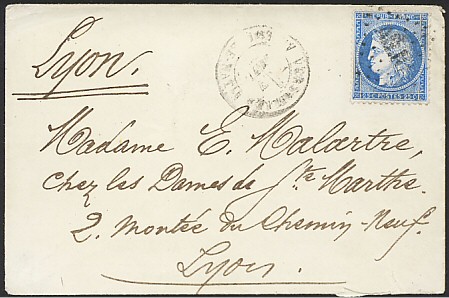 Lyon.
Madame E. Malartre,
Chez les Dames de Ste Marthe.
2. Montée du Chemin-Neuf.
Lyon.
25 C POSTES 25 C